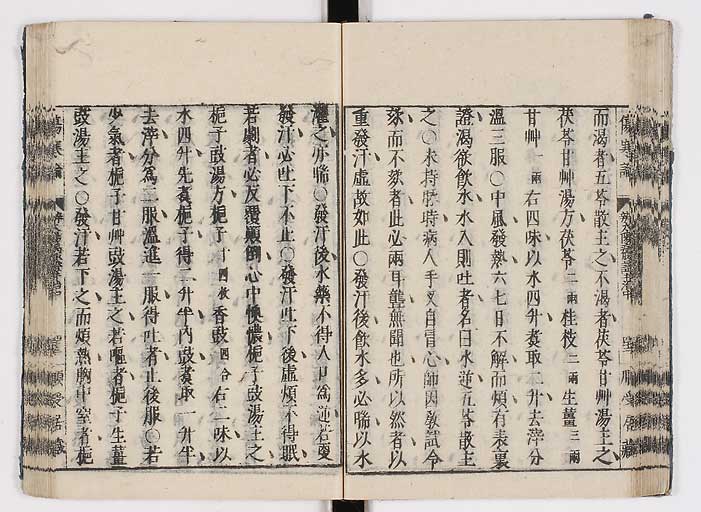 而渴者五苓散主之不渴者茯苓甘艸湯主之
茯苓甘艸湯方茯苓二兩桂枝二兩生薑三兩
甘艸一兩右四味以水四升煮取二升去滓分
溫三服〇中風發熱六七日不解而煩有表裏
證渴欲飲水水入則吐者名曰水逆五苓散主
之〇未持脉時病人手叉自冒心師因教試令
欬而不欬者此必兩耳聾無聞也所以然者以
重發汗虛故如此〇發汗後飲水多必喘以水
灌之亦喘〇發汗後水藥不得入口爲逆若更
發汗必吐下不止〇發汗吐下後虛煩不得眠
若劇者必反覆顚倒心中懊憹梔子豉湯主之
梔子豉湯方梔子十四枚香豉四合右二味以
水四升先煮梔子得二升半內豉煮取一升半
去滓分爲二服溫進一服得吐者止後服〇若
少氣者梔子甘艸豉湯主之若嘔者梔子生薑
豉湯主之〇發汗若下之而煩熱胸中窒者梔
傷寒論